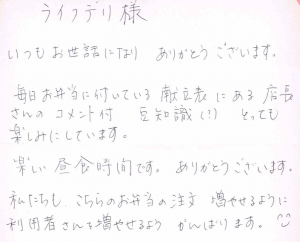 ライフデリ様
いつもお世話になり ありがとうございます。
毎日お弁当に付いている 献立表にある 店長
さんの コメント付 豆知識(?) とっても
楽しみにしています。
楽しい 昼食時間です。ありがとうございます。
私たちも、こちらのお弁当の注文 増やせるように
利用者さんを増やせるよう がんばります。